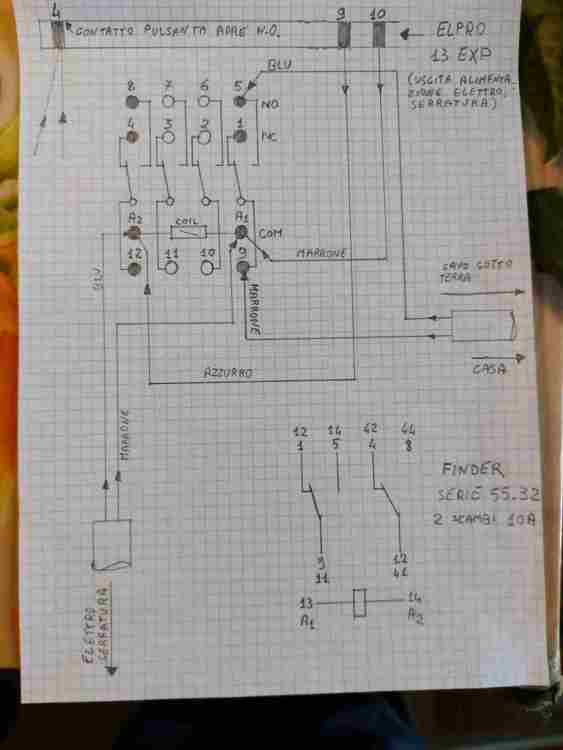 4
CONTATTO PULSANTA APRE N.O.
9 10
ELPRO
13 EXP
(USCITA ALIMENTA
ZIONE ELETTRO
SERRATURA)
BLU
8 7 6 5
NO
4 3 2 1
NC
A2 COIL A1
COM
12 11 10 9
MARRONE
BLU
MARRONE
CAVO SOTTO
TERRA
CASA
AZZURRO
MARRONE
12 14 42 44
1 5 4 8
FINDER
SERIE 55.32
2 SCAMBI 10A
9 12
11 41
13 14
A1 A2
ELETTRO
SERRATURA